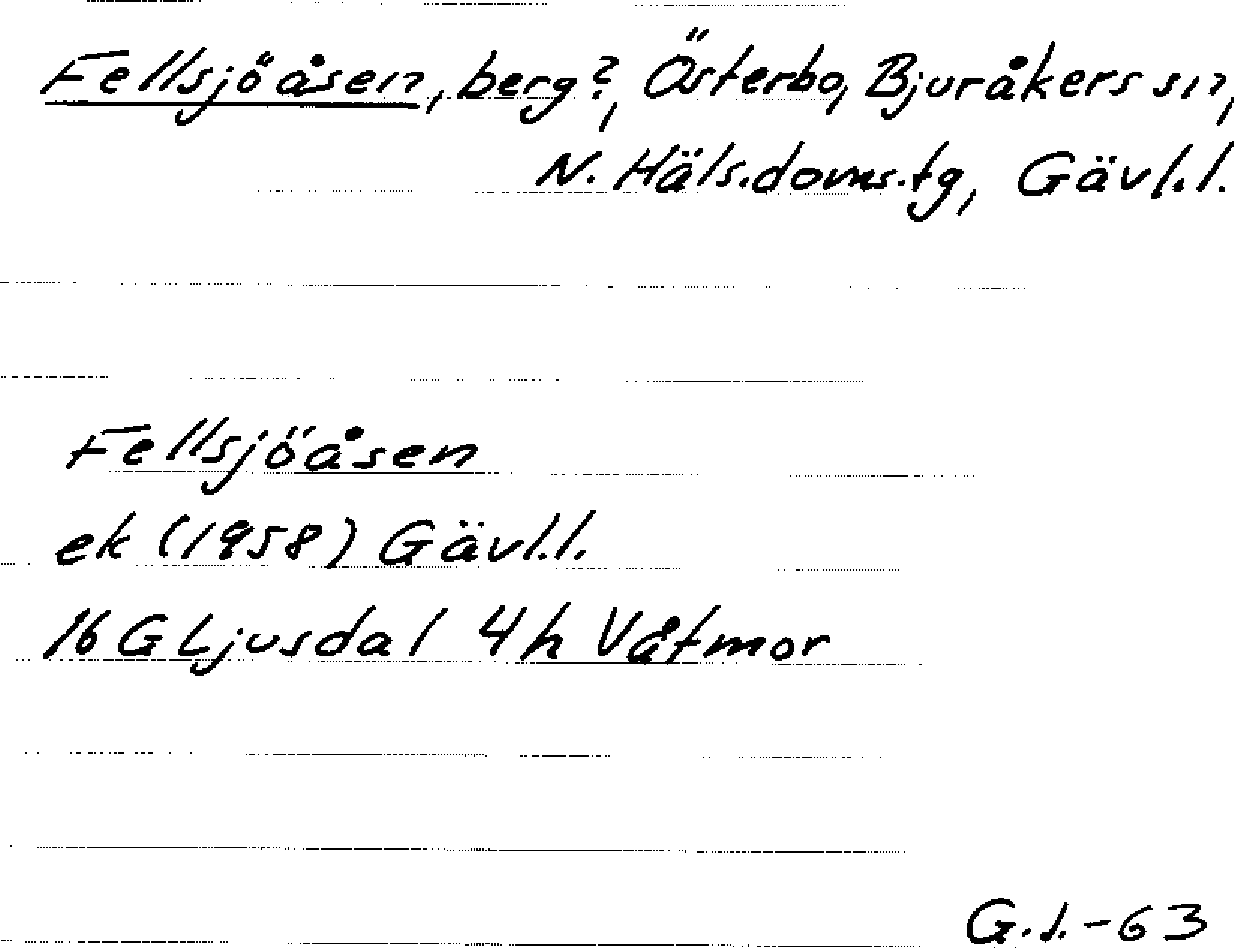 Fellsjöåsen, berg?, Österbo, Bjuråkers sn,
N. Häls.doms.tg, Gävl.l.
Fellsjöåsen
ek (1958) Gävl.l.
16 G Ljusdal 4 h Våtmor
G.J.-63